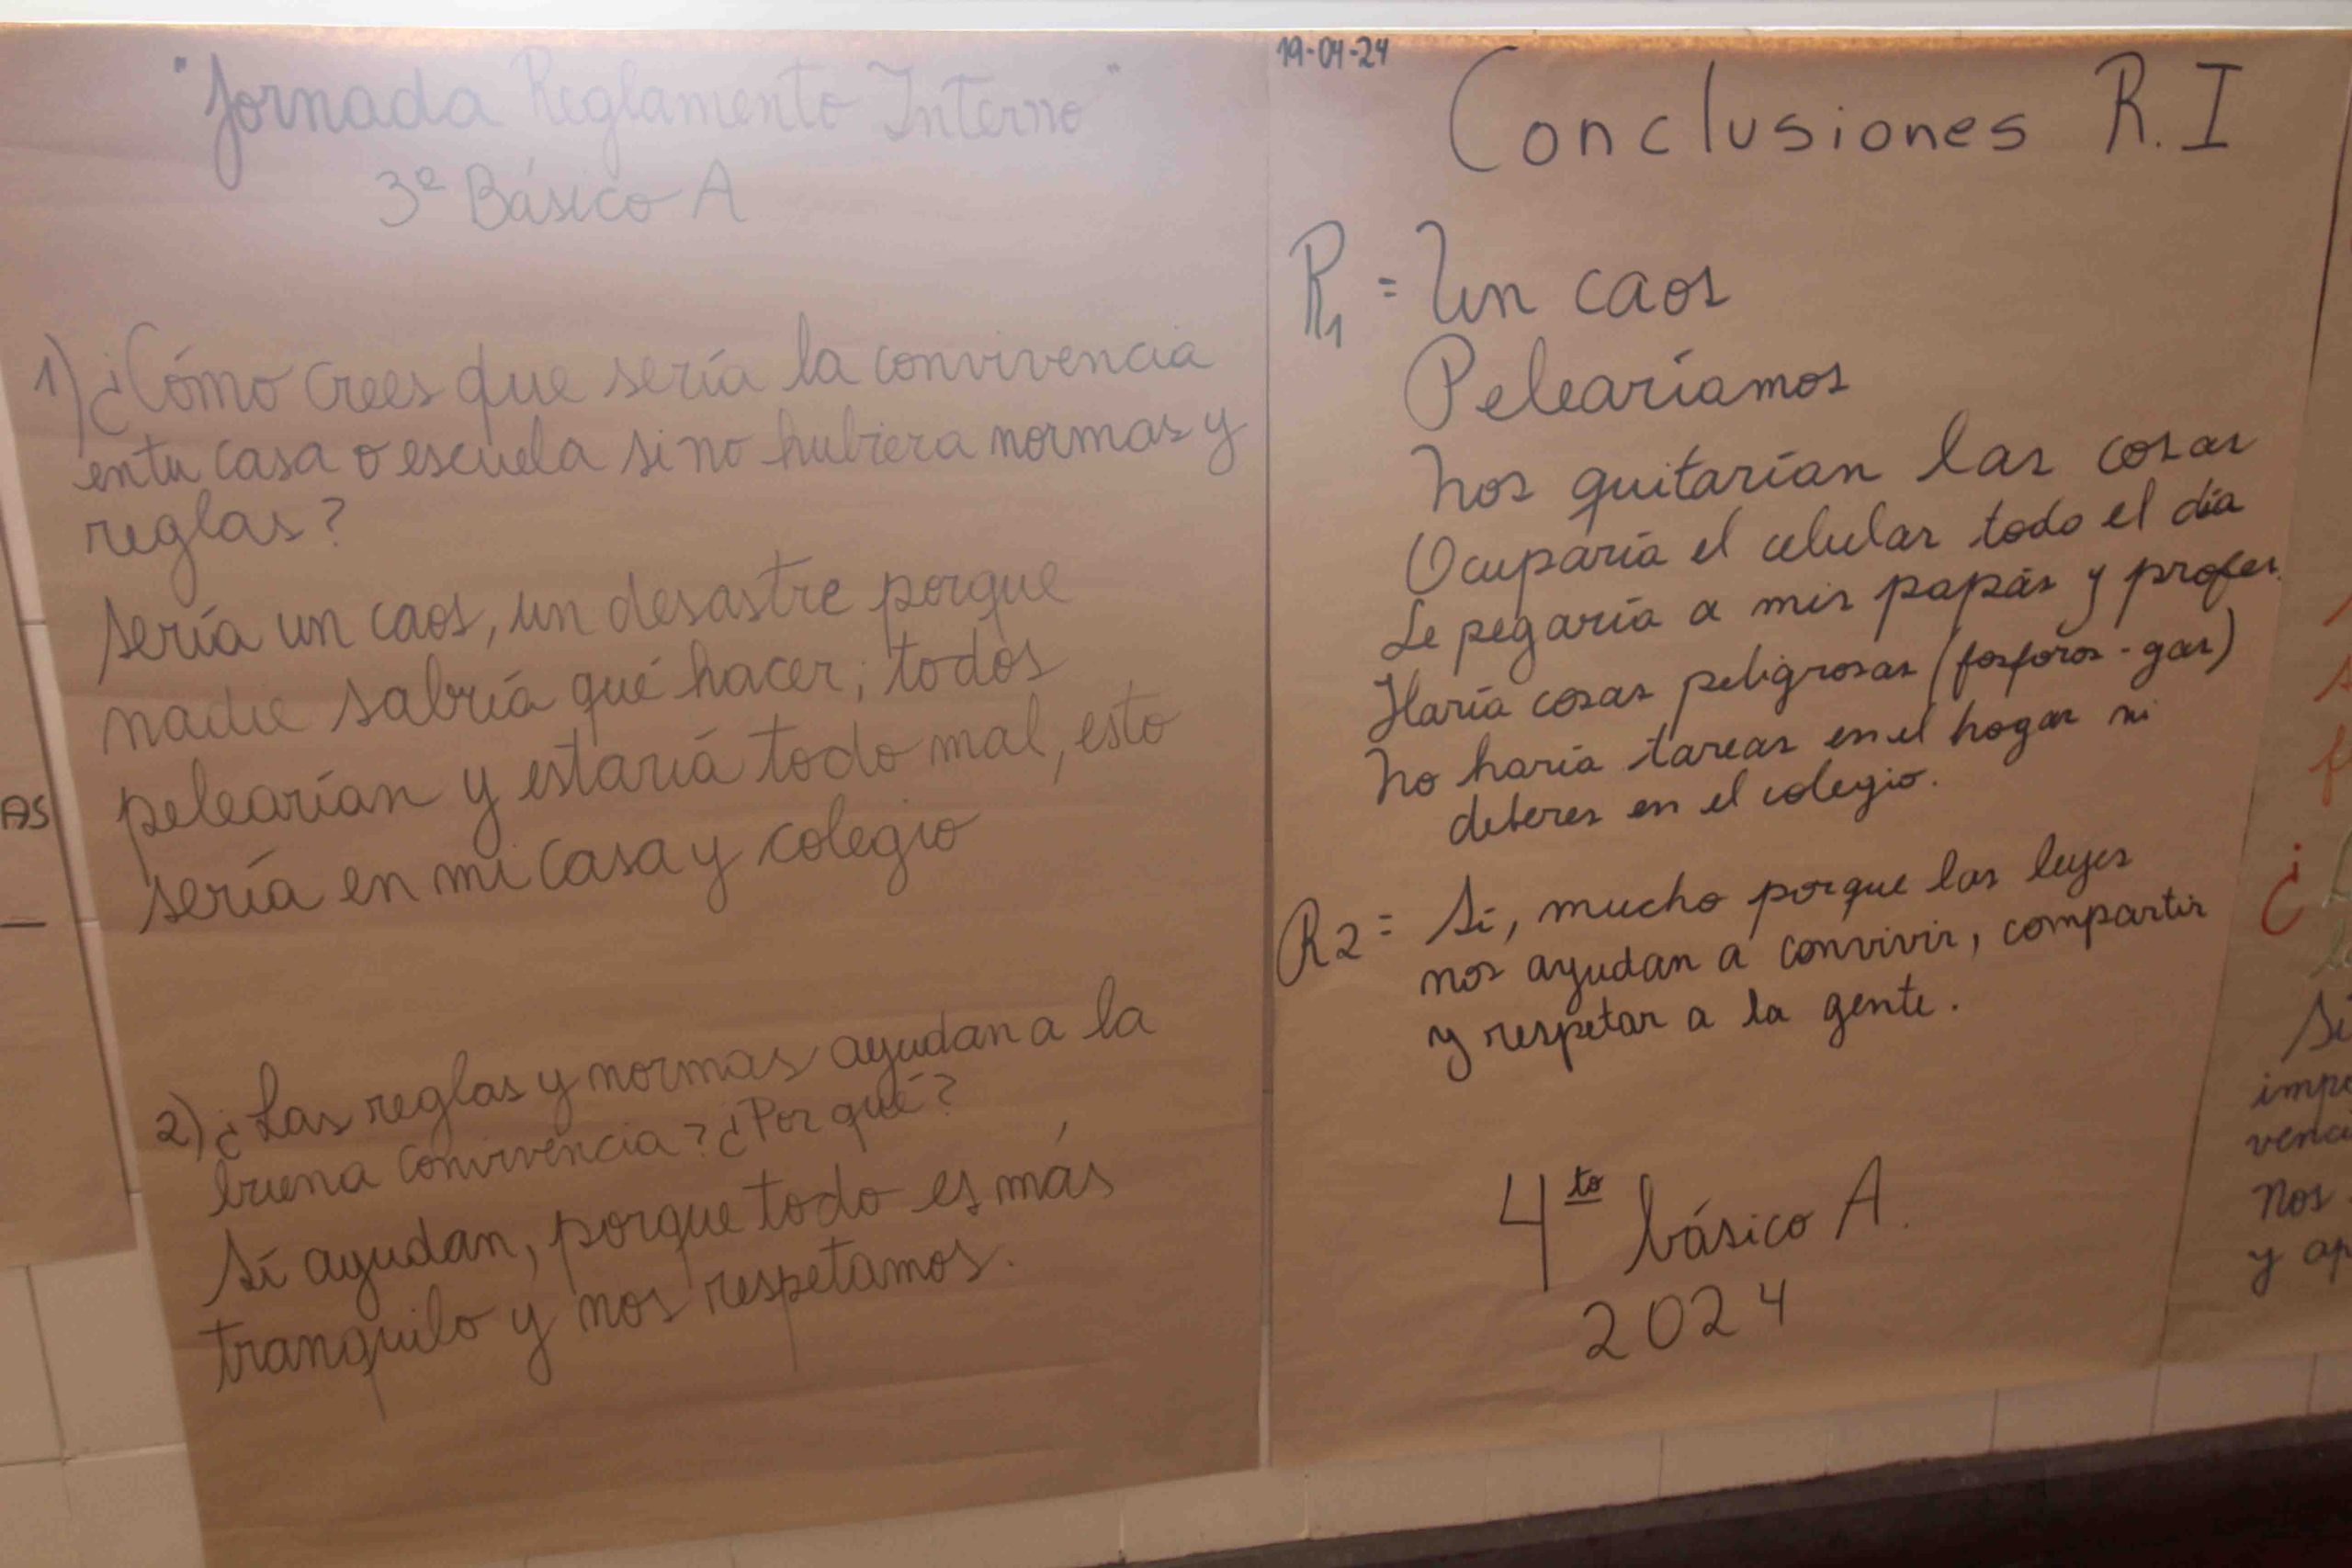 "Jornada Reglamento Interno"
3º Básico A
1) ¿Cómo crees que sería la convivencia
en tu casa o escuela si no hubiera normas y
reglas?
Sería un caos, un desastre porque
nadie sabría qué hacer; todos
pelearían y estaría todo mal, esto
sería en mi casa y colegio
2) ¿Las reglas y normas ayudan a la
buena convivencia? ¿Por qué?
Sí ayudan, porque todo es más
tranquilo y nos respetamos.
19-04-24
Conclusiones R.I
R1 = Un caos
Pelearíamos
Nos quitarían las cosas
Ocuparía el celular todo el día
Le pegaría a mis papás y profes.
Haría cosas peligrosas (fosforos - gas)
No haría tareas en el hogar ni
deberes en el colegio.
R2 = Si, mucho porque las leyes
nos ayudan a convivir, compartir
y respetar a la gente.
4to básico A.
2024
AS
Nos